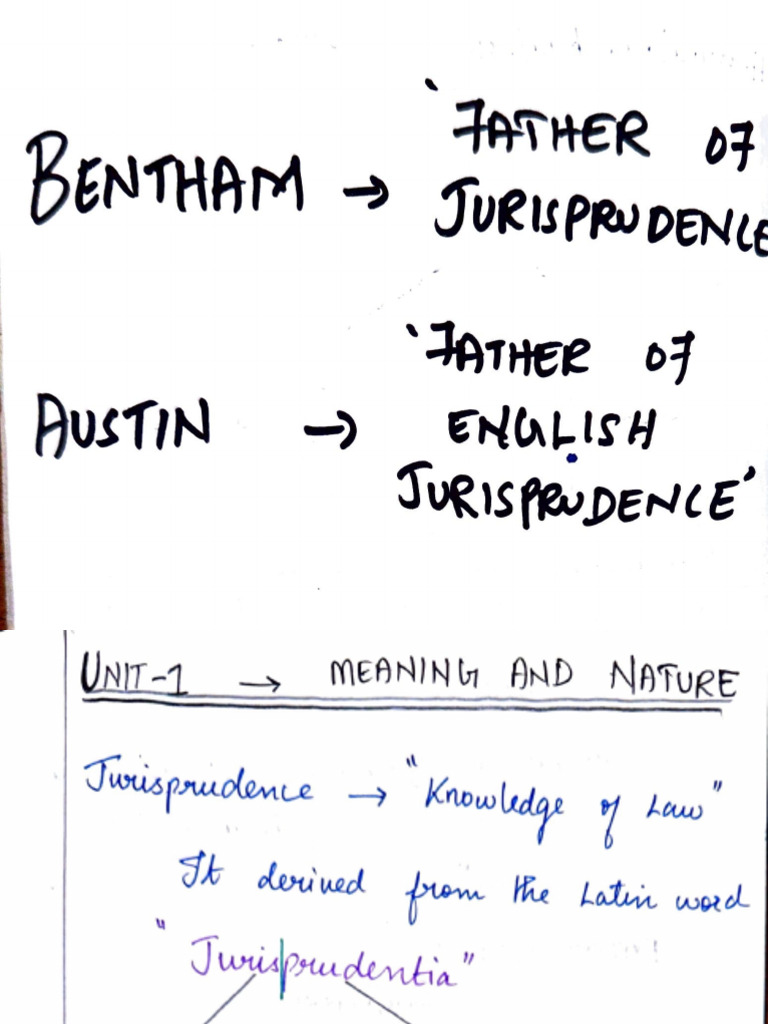 BENTHAM → 'FATHER OF
JURISPRUDENCE
AUSTIN → 'FATHER OF
ENGLISH
JURISPRUDENCE'
UNIT-1 → MEANING AND NATURE
Jurisprudence → "Knowledge of Law"
It derived from the Latin word
"Jurisprudentia"